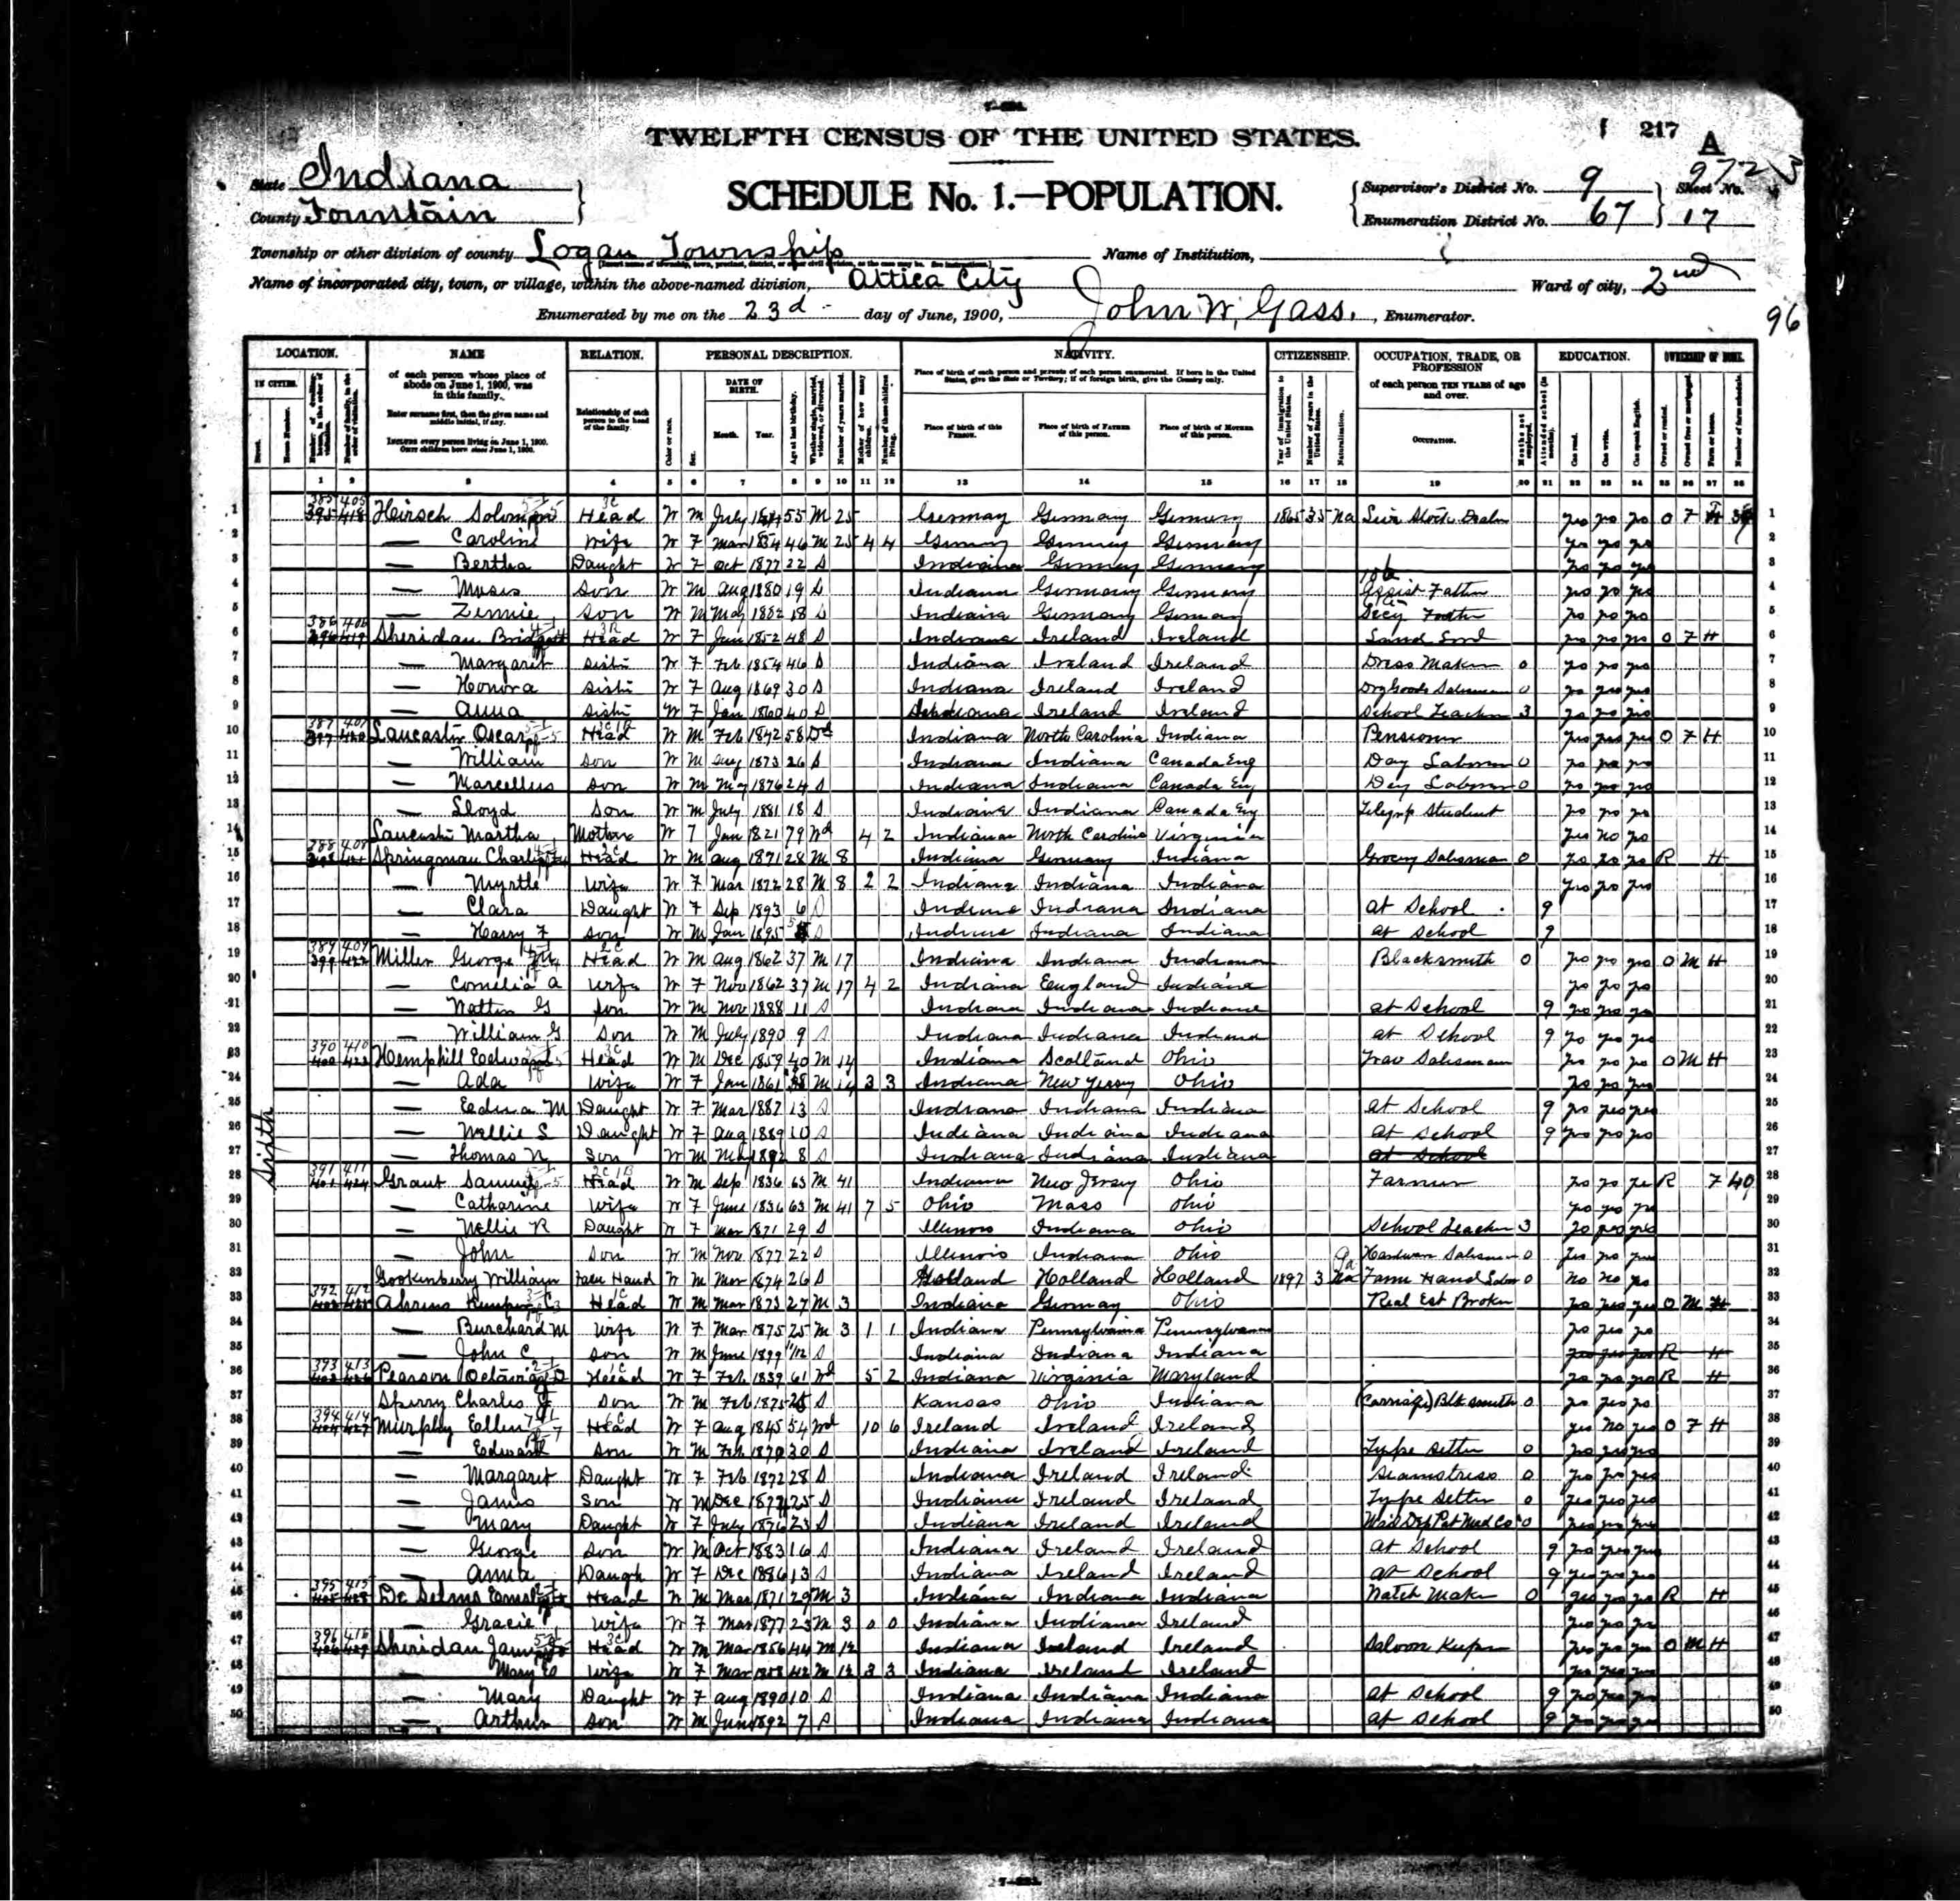 TWELFTH CENSUS OF THE UNITED STATES.
217
A
State Indiana
County Fountain
SCHEDULE No. 1.—POPULATION.
Supervisor's District No. 9
Enumeration District No. 67
Sheet No. 17
Township or other division of county Logan Township
Name of Institution,
Name of incorporated city, town, or village, within the above-named division, Attica City
Ward of city, 2nd
Enumerated by me on the 23d day of June, 1900, John W. Gass., Enumerator.
96
LOCATION. NAME RELATION. PERSONAL DESCRIPTION. NATIVITY. CITIZENSHIP. OCCUPATION, TRADE, OR PROFESSION EDUCATION. OWNERSHIP OF HOME.
IN CITIES. of each person whose place of abode on June 1, 1900, was in this family. Relationship of each person to the head of the family. DATE OF BIRTH. of each person TEN YEARS of age and over.
Enter surname first, then the given name and middle initial, if any.
INCLUDE every person living on June 1, 1900. OMIT children born since June 1, 1900.
Month. Year. Place of birth of this PERSON. Place of birth of FATHER of this person. Place of birth of MOTHER of this person. OCCUPATION.
1 2 3 4 5 6 7 8 9 10 11 12 13 14 15 16 17 18 19 20 21 22 23 24 25 26 27 28
1 Hirsch Solomon Head W M July 55 M 25 Germany Germany Germany 1865 35 Na yes yes yes O F 1
2 — Caroline Wife W F Mar 1854 46 M 25 4 4 Germany Germany Germany yes yes yes 2
3 — Bertha Daught W F Oct 1877 22 S Indiana Germany Germany yes yes yes 3
4 — Moses Son W M Aug 1880 19 S Indiana Germany Germany Assist Father yes yes yes 4
5 — Son W M May 1882 18 S Indiana Germany Germany yes yes yes 5
6 Sheridan Bridgett Head W F 1852 48 S Indiana Ireland Ireland yes yes yes O F H 6
7 — Margaret Sister W F Feb 1854 46 S Indiana Ireland Ireland Dress Maker 0 yes yes yes 7
8 — Honora Sister W F Aug 1869 30 S Indiana Ireland Ireland Dry Goods Salesman 0 yes yes yes 8
9 — Anna Sister W F Jan 1860 40 S Indiana Ireland Ireland School Teacher 3 yes yes yes 9
10 Lancaster Oscar Head W M Feb 1842 58 Wd Indiana North Carolina Indiana Pensioner yes yes yes O F H 10
11 — William Son W M Aug 1873 26 S Indiana Indiana Canada Eng Day Laborer 0 yes yes yes 11
12 — Marcellus Son W M May 1876 24 S Indiana Indiana Canada Eng Day Laborer 0 yes yes yes 12
13 — Lloyd Son W M July 1881 18 S Indiana Indiana Canada Eng Student yes yes yes 13
14 Lancaster Martha Mother W F Jan 1821 79 Wd 4 2 Indiana North Carolina Virginia yes no yes 14
15 Springman Charles Head W M Aug 1871 28 M 8 Indiana Germany Indiana Grocery Salesman 0 yes yes yes R H 15
16 — Myrtle Wife W F Mar 1872 28 M 8 2 2 Indiana Indiana Indiana yes yes yes 16
17 — Clara Daught W F Sep 1893 6 S Indiana Indiana Indiana At School 9 17
18 — Harry F Son W M Jan 1895 5 S Indiana Indiana Indiana at School 9 18
19 Miller George Head W M Aug 1862 37 M 17 Indiana Indiana Indiana Blacksmith 0 yes yes yes O M H 19
20 — Cornelia A Wife W F Nov 1862 37 M 17 4 2 Indiana England Indiana yes yes yes 20
21 — G Son W M Nov 1888 11 S Indiana Indiana Indiana at School 9 yes yes yes 21
22 — William G Son W M July 1890 9 S Indiana Indiana Indiana at School 9 yes yes yes 22
23 Hemphill Edward Head W M Dec 1859 40 M 14 Indiana Scotland Ohio Trav Salesman yes yes yes O M H 23
24 — Ada Wife W F Jan 1861 M 14 3 3 Indiana New Jersey Ohio yes yes yes 24
25 — Edna M Daught W F Mar 1887 13 S Indiana Indiana Indiana at School 9 yes yes yes 25
26 — Nellie S Daught W F Aug 1889 10 S Indiana Indiana Indiana at School 9 yes yes yes 26
27 — Thomas N Son W M May 1892 8 S Indiana Indiana Indiana at School 27
Sixth
28 Grant Samuel Head W M Sep 1836 63 M 41 Indiana New Jersey Ohio Farmer yes yes yes R F 49 28
29 — Catharine Wife W F June 1836 63 M 41 7 5 Ohio Mass Ohio yes yes yes 29
30 — Nellie R Daught W F Mar 1871 29 S Illinois Indiana Ohio School Teacher 3 yes yes yes 30
31 — John Son W M Nov 1877 22 S Illinois Indiana Ohio Hardware Salesman 0 yes yes yes 31
32 Gookenberry William Farm Hand W M Mar 1874 26 S Holland Holland Holland 1897 3 Farm Hand Labor 0 No No yes 32
33 Ahrens Head W M Mar 1873 27 M 3 Indiana Germany Ohio Real Est Broker yes yes yes O M H 33
34 — Burchard M Wife W F Mar 1875 25 M 3 1 1 Indiana Pennsylvania Pennsylvania yes yes yes 34
35 — John C Son W M June 1899 11/12 S Indiana Indiana Indiana R H 35
36 Pearson Octavia D Head W F Feb 1839 61 Wd 5 2 Indiana Virginia Maryland yes yes yes R H 36
37 Sperry Charles Son W M Feb 1875 25 S Kansas Ohio Indiana (Carriage) Blk Smith 0 yes yes yes 37
38 Murphy Ellen Head W F Aug 1845 54 Wd 10 6 Ireland Ireland Ireland yes No yes O F H 38
39 — Edward Son W M Feb 1870 30 S Indiana Ireland Ireland Type Setter 0 yes yes yes 39
40 — Margaret Daught W F Feb 1872 28 S Indiana Ireland Ireland Seamstress 0 yes yes yes 40
41 — James Son W M Dec 1874 25 S Indiana Ireland Ireland Type Setter 0 yes yes yes 41
42 — Mary Daught W F July 1876 23 S Indiana Ireland Ireland Pat Med Co 0 yes yes yes 42
43 — George Son W M Oct 1883 16 S Indiana Ireland Ireland at School 9 yes yes yes 43
44 — Anna Daugh W F Dec 1886 13 S Indiana Ireland Ireland at School 9 yes yes yes 44
45 De Selms Ernest Head W M Mar 1871 29 M 3 Indiana Indiana Indiana 0 yes yes yes R H 45
46 — Gracie Wife W F Mar 1877 23 M 3 0 0 Indiana Indiana Ireland yes yes yes 46
47 Sheridan James Head W M Mar 1856 44 M 12 Indiana Ireland Ireland Saloon Keeper yes yes yes O M H 47
48 Mary E Wife W F Mar 1858 42 M 12 3 3 Indiana Ireland Ireland yes yes yes 48
49 — Mary Daught W F Aug 1890 10 S Indiana Indiana Indiana at School 9 yes yes yes 49
50 — Arthur Son W M June 1892 7 S Indiana Indiana Indiana at School 9 yes yes yes 50